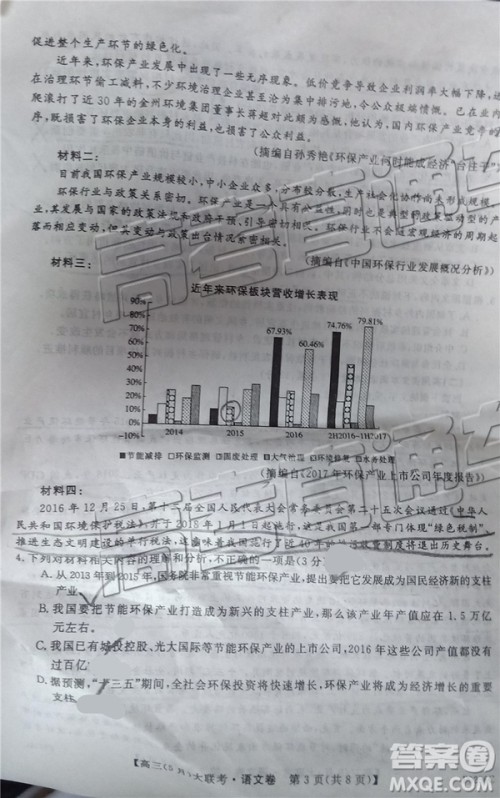 促进整个生产环节的绿色化。
近年来，环保产业发展中出现了一些无序现象。低价竞争导致企业利润率大幅下降，
在治理环节偷工减料，不少环境治理企业甚至沦为集中排污地，令公众极端愤慨。已在业内
爬滚打了近30年的金州环境集团董事长蒋超对此颇为感慨。他认为，国内环保产业竞争的
序，既损害了环保企业本身的利益，也损害了公众利益。
(摘编自孙秀艳《环保产业何时能成经济“台柱子”
材料二：
目前我国环保产业规模较小，中小企业众多，分布较分散，生产社会化协作尚未形成规模。
环保行业与政策关系密切。环保行业是一个具有公益性，同时也是典型的政策驱动型的产
业，其发展与国家的政策法规和政府干预、引导密切相关。环保行业不会随宏观经济的周期起
落而相应变动，但其变动与政策出台情况密切相关。
(摘编自《中国环保行业发展概况分析》)
材料三：
近年来环保板块营收增长表现
90%
80%
70%
60%
50%
40%
30%
20%
10%
0%
-10%
67.93%
60.46%
74.76%
79.81%
2014
2015
2016
2H2016-1H2017
节能减排 环保监测 固废处理 大气治理 环境修复 水务处理
(摘编自《2017年环保产业上市公司年度报告》)
材料四：
2016年12月25日，第十二届全国人民代表大会常务委员会第二十五次会议通过《中华人
民共和国环境保护税法》，并于2018年1月1日起施行，这是我国第一部专门体现“绿色税制”、
推进生态文明建设的单行税法，这意味着我国施行了近40年的排污收费制度将退出历史舞台。
4.下列对材料相关内容的理解和分析，不正确的一项是(3分
A.从2013年到2015年，国务院非常重视节能环保产业，提出要把它发展成为国民经济新的支柱
产业。
B.我国要把节能环保产业打造成为新兴的支柱产业，那么该产业年产值应在1.5万亿
元左右。
C.我国已有城投控股、光大国际等节能环保产业的上市公司，2016年这些公司产值都没有
过百亿
D.据预测，“十三五”期间，全社会环保投资将快速增长，环保产业将成为经济增长的重要
支柱。
【高三(5月)大联考·语文卷 第3页(共8页)】
高考直通车
高考直通车
答案圈
MXQE.COM